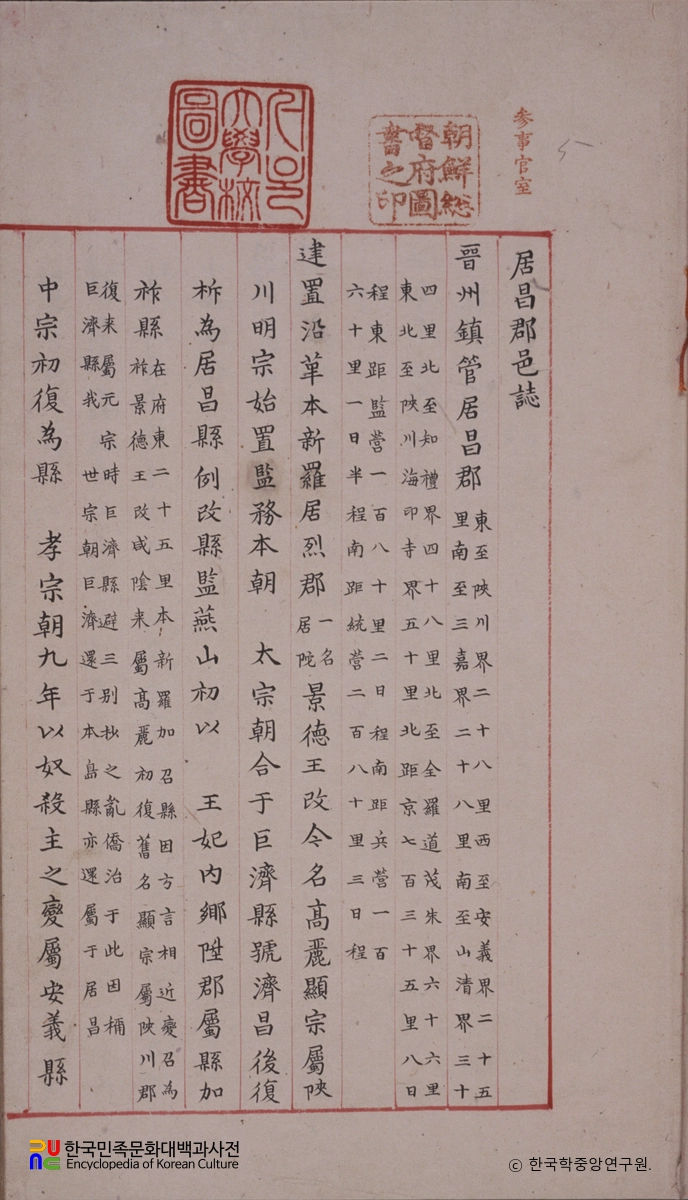 參事官室
朝鮮総
督府圖
書之印
서울
大學校
圖書
居昌郡邑誌
晋州鎮管居昌郡 東至陜川界二十八里西至安義界二十五
里南至三嘉界二十八里南至山清界三十
四里北至知禮界四十八里北至全羅道茂朱界六十六里
東北至陜川海印寺界五十里北距京七百三十五里八日
程東距監營一百八十里二日程南距兵營一百
六十里一日半程南距統營二百八十里三日程
建置沿革本新羅居烈郡 一名居陀 景德王改今名髙麗顯宗屬陜
川明宗始置監務本朝 太宗朝合于巨濟縣號濟昌後復
析為居昌縣例改縣監燕山初以 王妃内鄉陞郡屬縣加
祚縣 在府東二十五里本新羅加召縣因方言相近變召為
祚景德王改咸陰来屬髙麗初復舊名顯宗屬陜川郡
復来屬元 宗時巨濟縣避三别杪之亂僑治于此因稱
巨濟縣我 世宗朝巨濟還于本島縣亦還屬于居昌
中宗初復為縣 孝宗朝九年以奴殺主之變屬安義縣
한국민족문화대백과사전
Encyclopedia of Korean Culture
© 한국학중앙연구원.